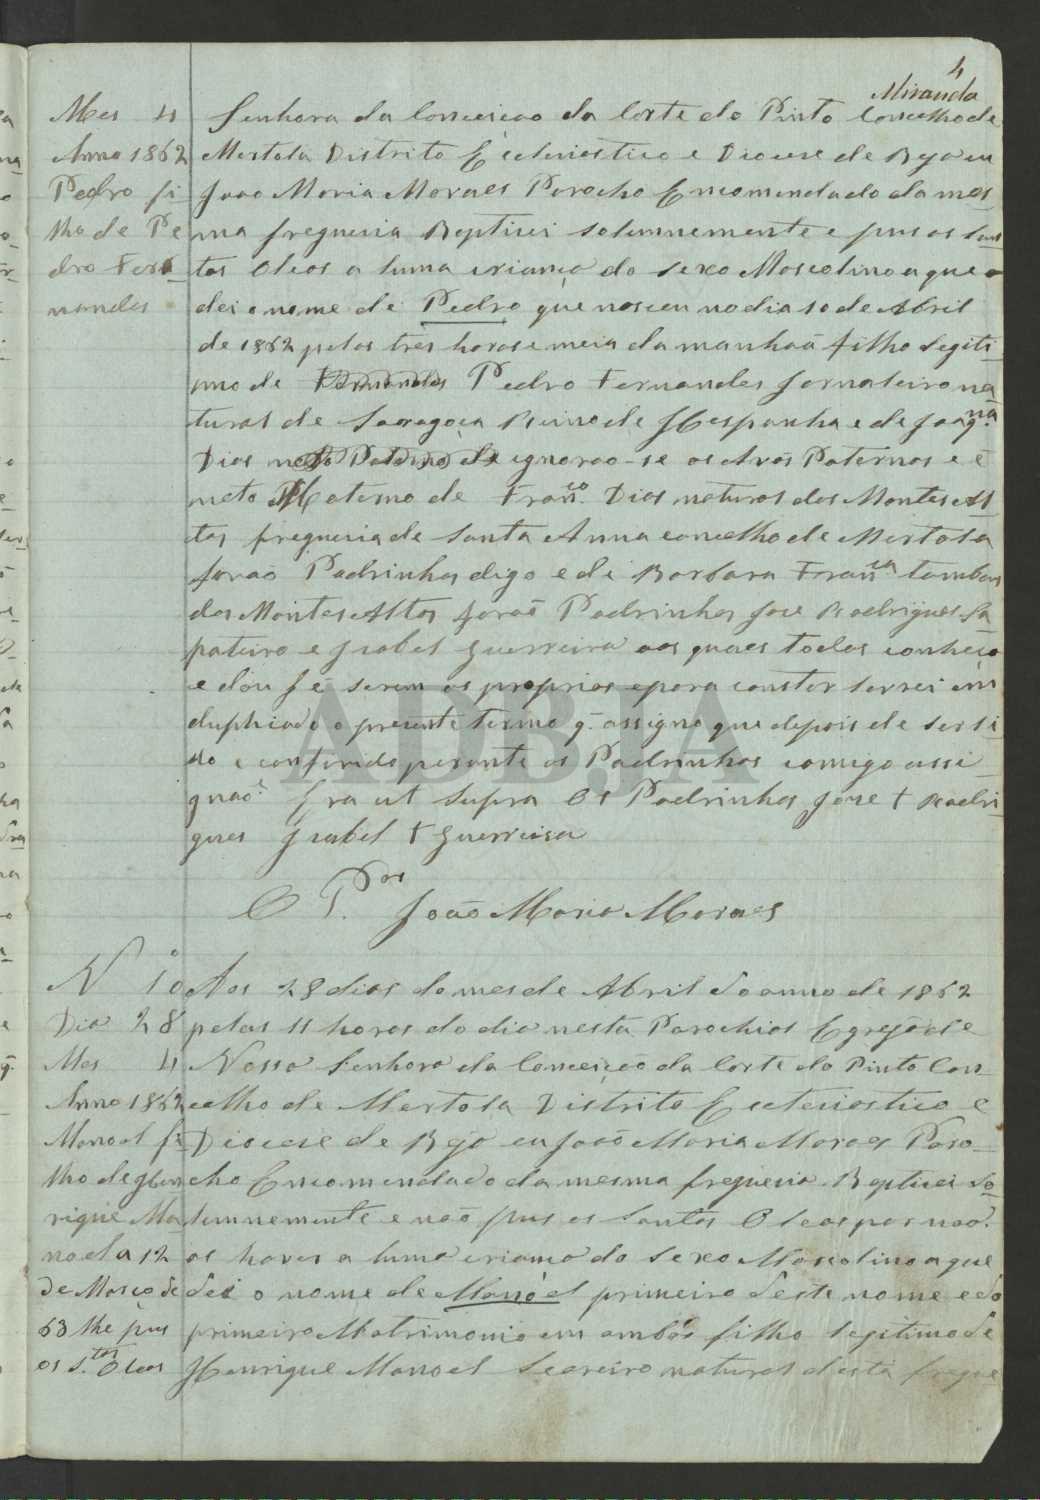 4
Miranda
Mes 4
Anno 1862
Pedro fi-
lho de Pe
dro Fer
nandes
Senhora da Conceicao da Corte do Pinto Concelho de
Mertola Distrito Ecclesiastico e Diocese de Beja eu
Joao Maria Moraes Parocho Encomendado da mes-
ma freguesia Baptisei solemnemente e pus os San
tos Oleos a huma criança do sexo Mascolino a que
dei o nome de Pedro que nasceu no dia 10 de Abril
de 1862 pelas tres horas e meia da manhaã filho legiti-
mo de Fernandes Pedro Fernandes Jornaleiro na
tural de Saragoça Reino de Hespanha e de Joaq.na
Dias neto Paterno de ignorao-se os Avós Paternos e é
neto Materno de Fran.co Dias natural dos Montes Al
tos freguesia de Santa Anna concelho de Mertola
forão Padrinhos digo e de Barbara Fran.ca tambem
dos Montes Altos forão Padrinhos Jose Rodrigues Sa
pateiro e Isabel Guerreira aos quaes todos conheço
e dou fé serem os proprios e para constar lavrei em
duplicado o presente termo q. assigno que depois de ser li-
do e conferido perante os Padrinhos comigo assi-
gnaõ. Era ut supra Os Padrinhos Jose + Rodri-
gues Isabel + Guerreira
O P.or João Maria Moraes
N 10
Dia 28
Mes 4
Anno 1862
Manoel fi-
lho de Hen
rique Ma
noel a 12
de Março de
63 lhe pus
os S.tos Oleos
Aos 28 dias do mes de Abril do anno de 1862
pelas 11 horas do dia nesta Parochial Egreja de
Nossa Senhora da Conceição da Corte do Pinto Con-
celho de Mertola Distrito Ecclesiastico e
Diocese de Beja eu João Maria Moraes Paro-
cho Encomendado da mesma freguesia Baptisei So-
lemnemente e não pus os Santos Oleos por não
os haver a huma criança do sexo Mascolino a que
dei o nome de Manoel primeiro deste nome e do
primeiro Matrimonio em ambos filho legitimo de
Henrique Manoel Seareiro natural desta fregue-
ADBJA